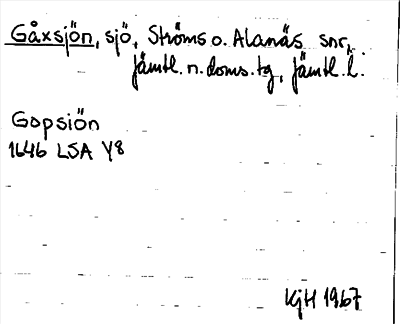 Gåxsjön, sjö, Ströms o. Alanäs snr,
Jämtl. n. doms. tg, Jämtl. l.
Gopsiön
1646 LSA Y8
KjH 1967